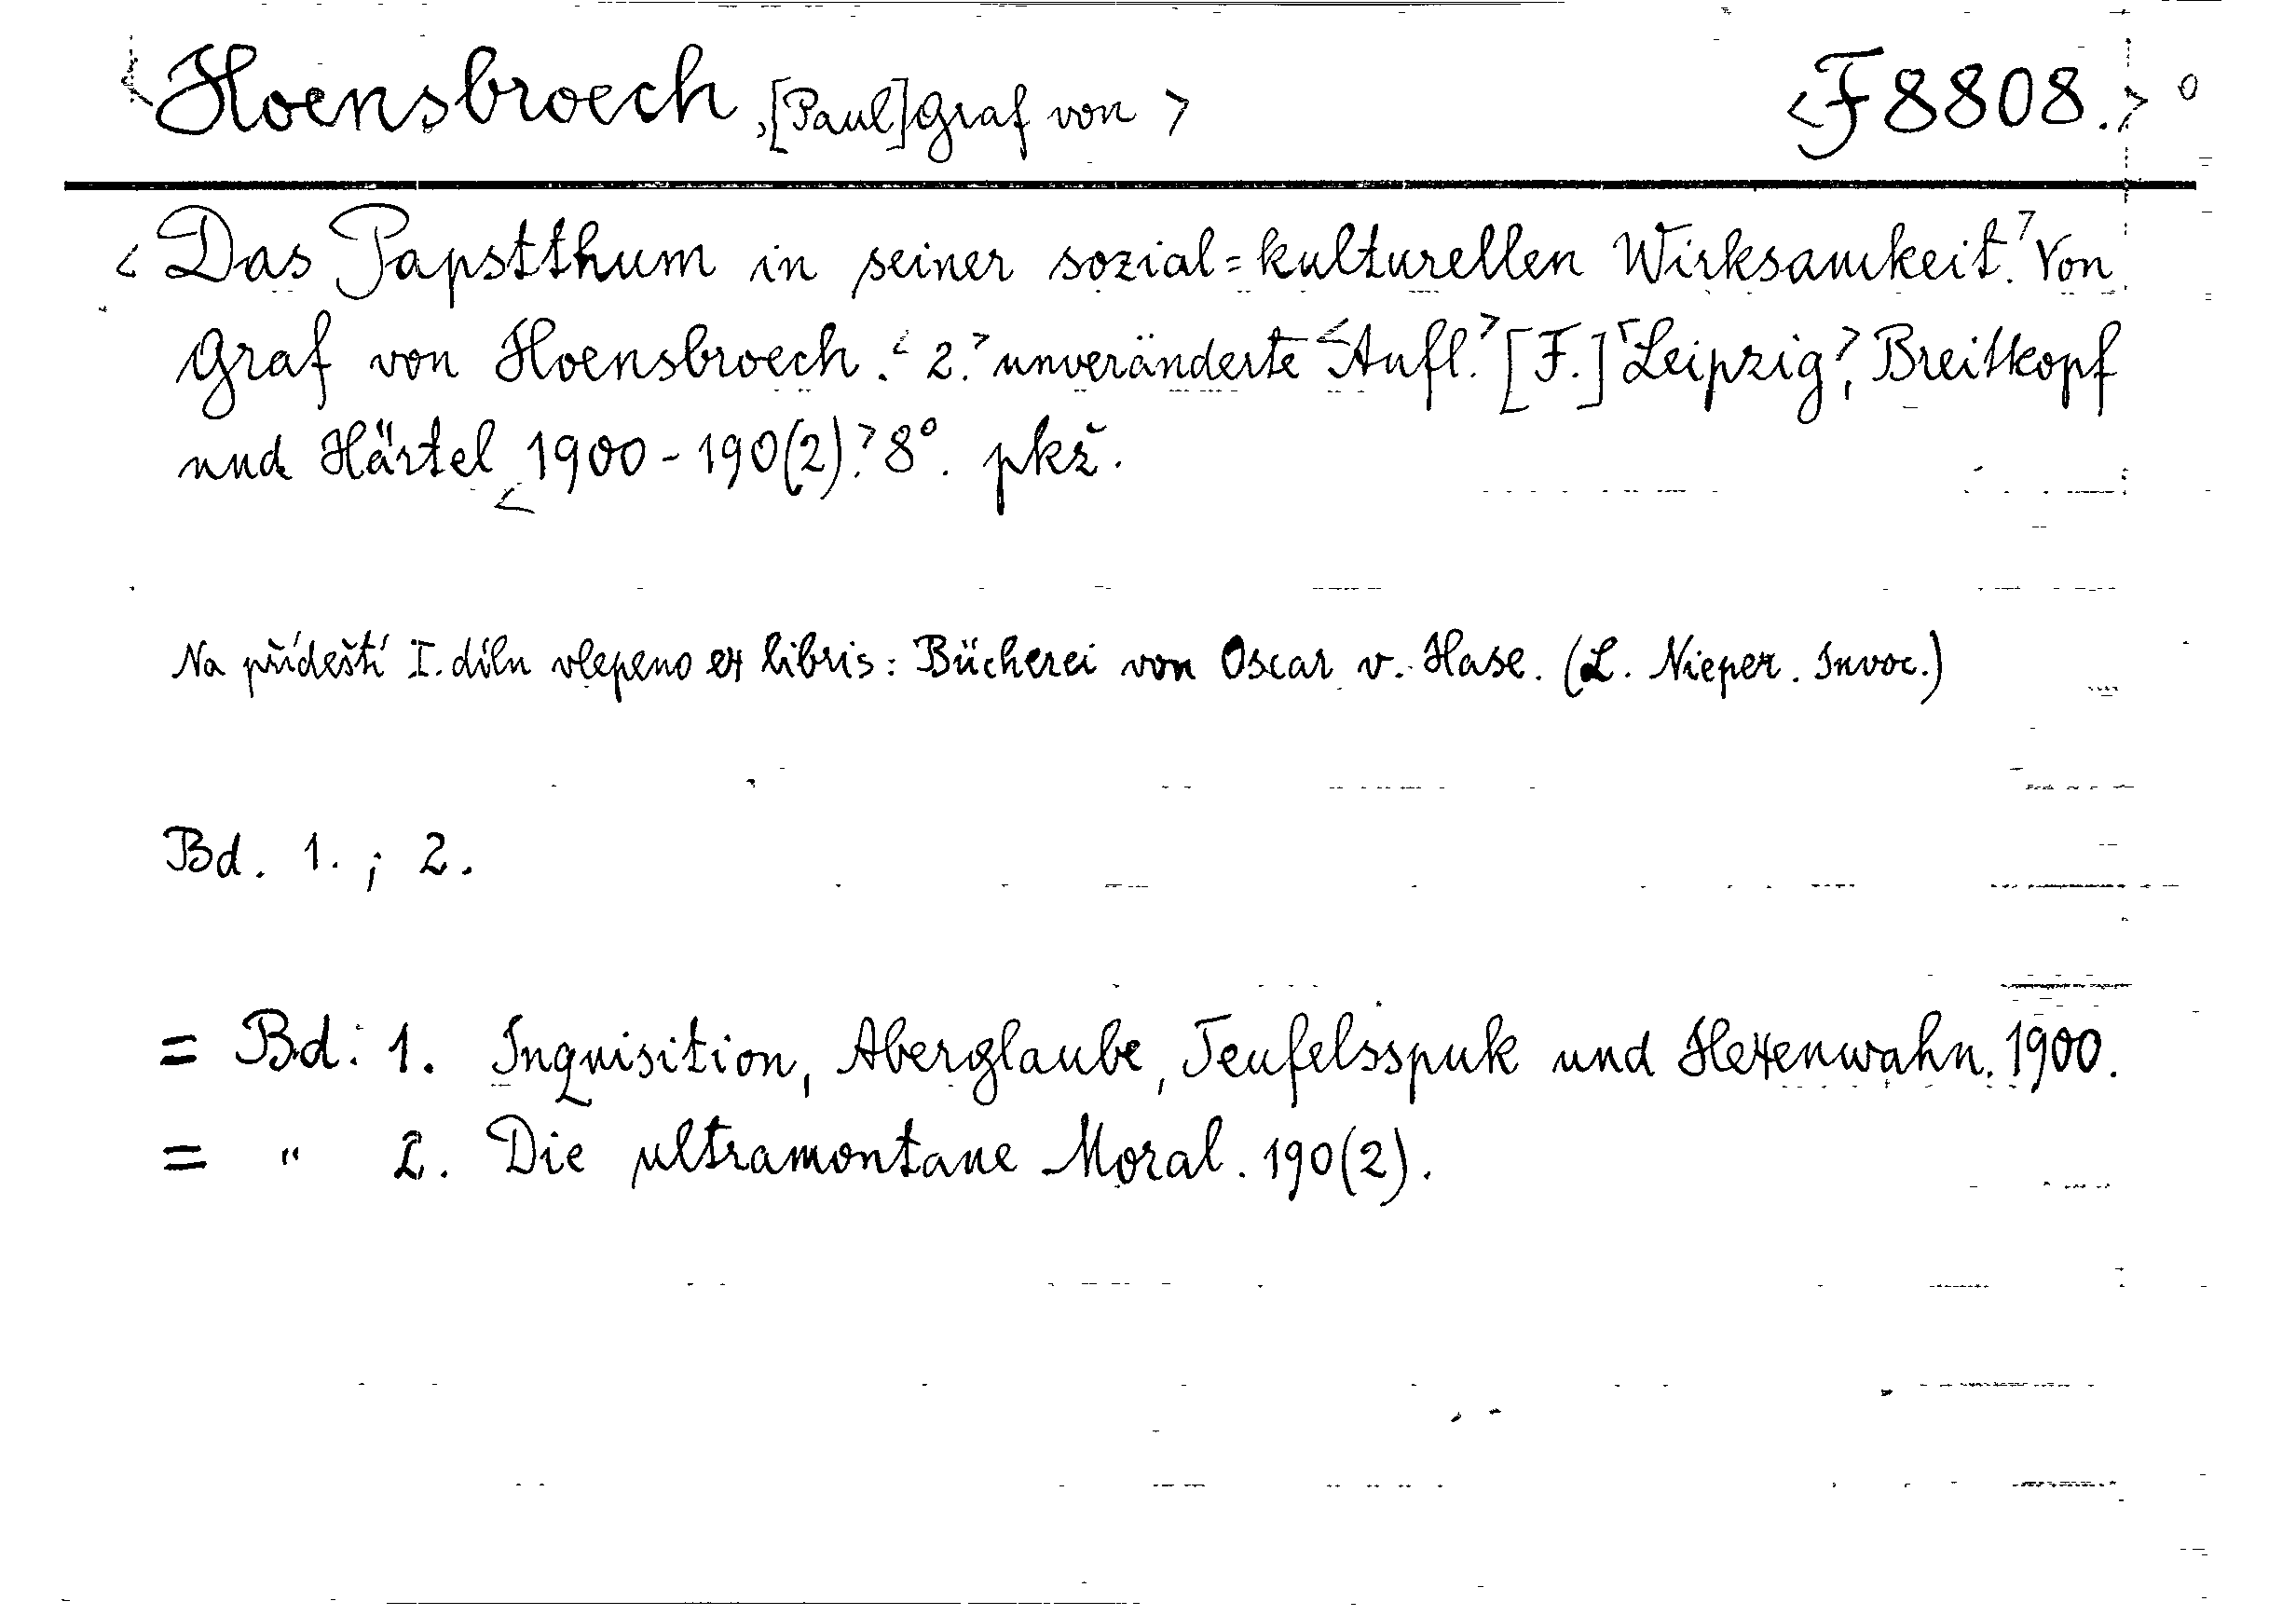 <Hoensbroech, [Paul] Graf von> <F 8808.> o
<Das Papstthum in seiner sozial=kulturellen Wirksamkeit.> Von
Graf von Hoensbroech. <2.> unveränderte <Aufl.> [F.] <Leipzig>, Breitkopf
und Härtel <1900-190(2).> 8°. pkž.
Na přídeští I. dílu vlepeno ex libris: Bücherei von Oscar v. Hase. (L. Nieper. Invoc.)
Bd. 1. ; 2.
= Bd. 1. Inquisition, Aberglaube, Teufelsspuk und Hexenwahn. 1900.
= " 2. Die ultramontane Moral. 190(2).